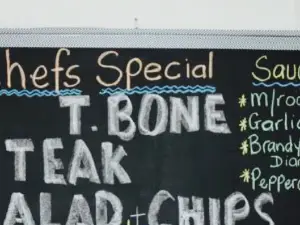 hefs Special
T. BONE
TEAK
ALAD + CHIPS
Sau
*M/roo
*Garlic
*Brandy
Dian
*Pepperc